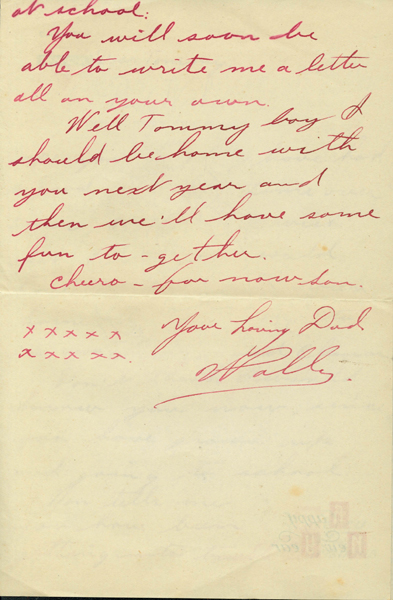 at school:
You will soon be
able to write me a letter
all on your own.
Well Tommy boy I
should be home with
you next year and
then we'll have some
fun to-gether.
Cheero - for now son.
x x x x x Your loving Dad
x x x x x. Wally.